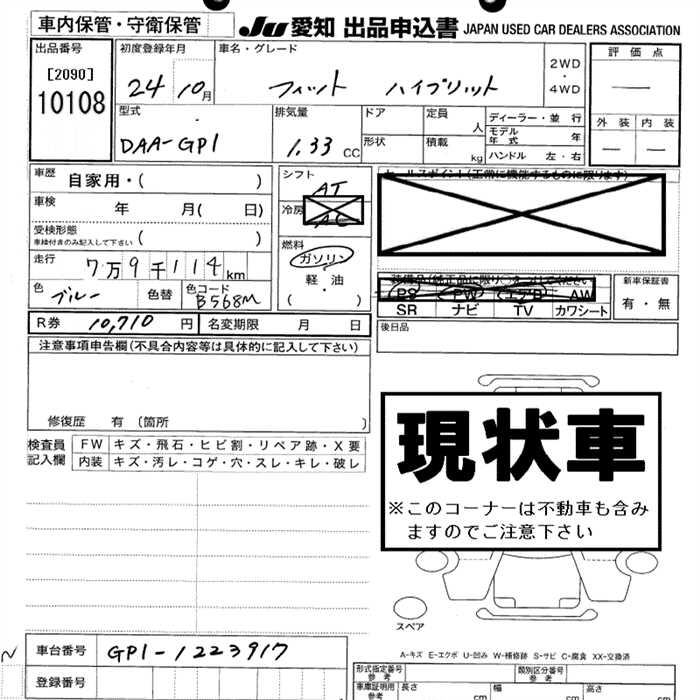 車内保管・守衛保管
JU 愛知 出品申込書 JAPAN USED CAR DEALERS ASSOCIATION
出品番号
[2090]
10108
初度登録年月
24 10月
車名・グレード
フィット ハイブリット
2WD
・
4WD
評価点
—
外装 内装
— —
型式
DAA-GP1
排気量
1.33 CC
ドア
形状
定員
人
積載
kg
ディーラー・並行
モデル年式 年
ハンドル 左・右
車歴 自家用・( )
車検 年 月( 日)
受検形態
車検付きのみ記入して下さい ( )
走行 7万9千114km
色 ブルー 色替 色コード B568M
シフト AT
冷房 AC
燃料
ガソリン
軽油
( ・ )
セールスポイント(正常に機能するものに限ります)
装備品(純正品に限り○をつけてください)
PS PW エアB AW
SR ナビ TV カワシート
新車保証書
有・無
R券 10,710円 名変期限 月 日
後日品
注意事項申告欄(不具合内容等は具体的に記入して下さい)
修復歴 有 (箇所 )
検査員記入欄
FW キズ・飛石・ヒビ割・リペア跡・X要
内装 キズ・汚レ・コゲ・穴・スレ・キレ・破レ
現状車
※このコーナーは不動車も含み
ますのでご注意下さい
スペア
A-キズ E-エクボ U-凹み W-補修跡 S-サビ C-腐食 XX-交換済
車台番号 GP1-1223917
登録番号
形式指定番号
参考
類別区分番号
参考
車庫証明用
参考
長さ cm 幅 cm 高さ cm